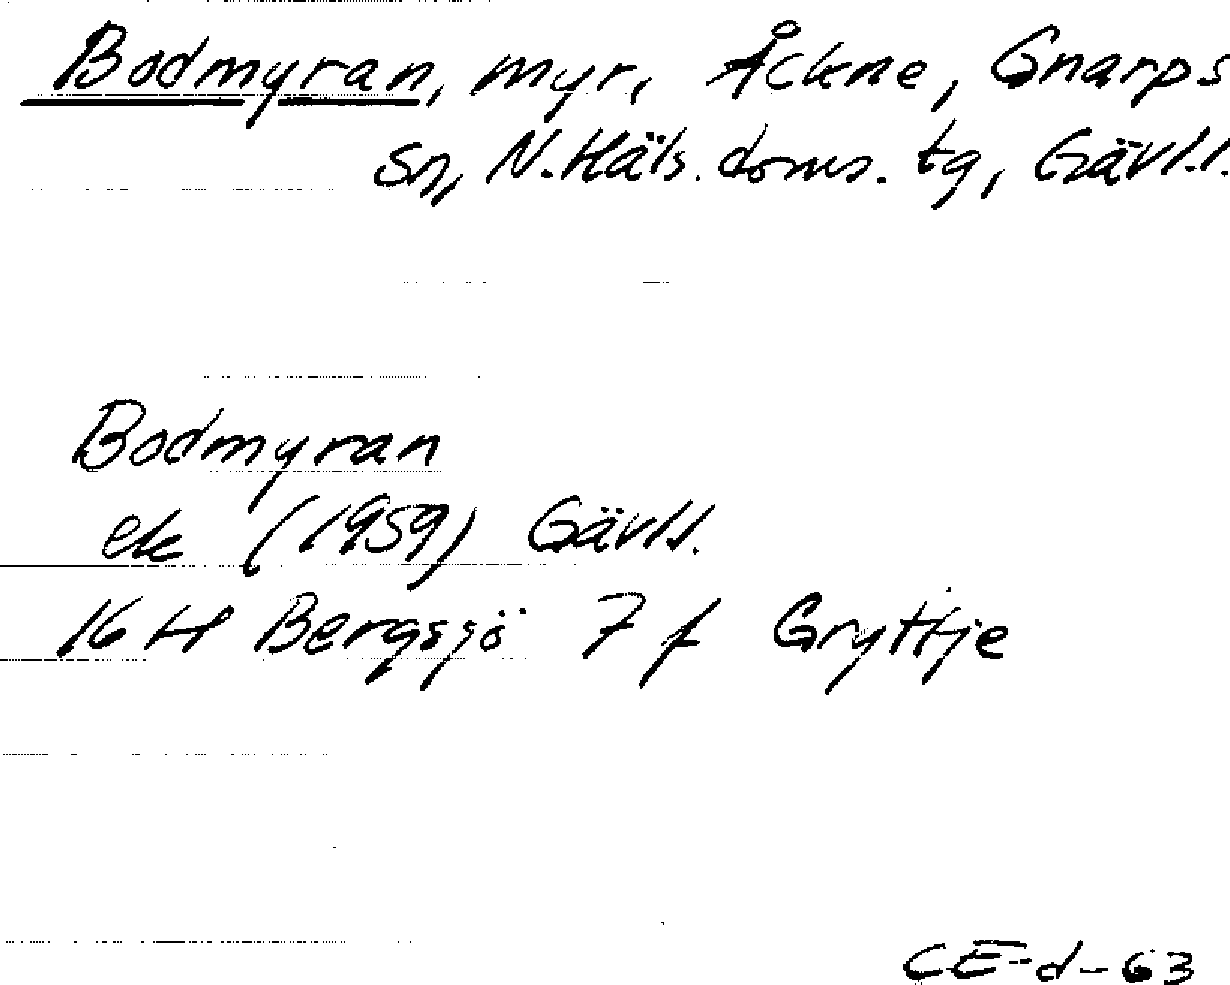 Bodmyran, myr, Åckne, Gnarps
sn, N. Häls. doms. tg, Gävl.l.
Bodmyran
ek (1959) Gävl.l.
16 H Bergsjö 7 f Gryttje
CE-d-63